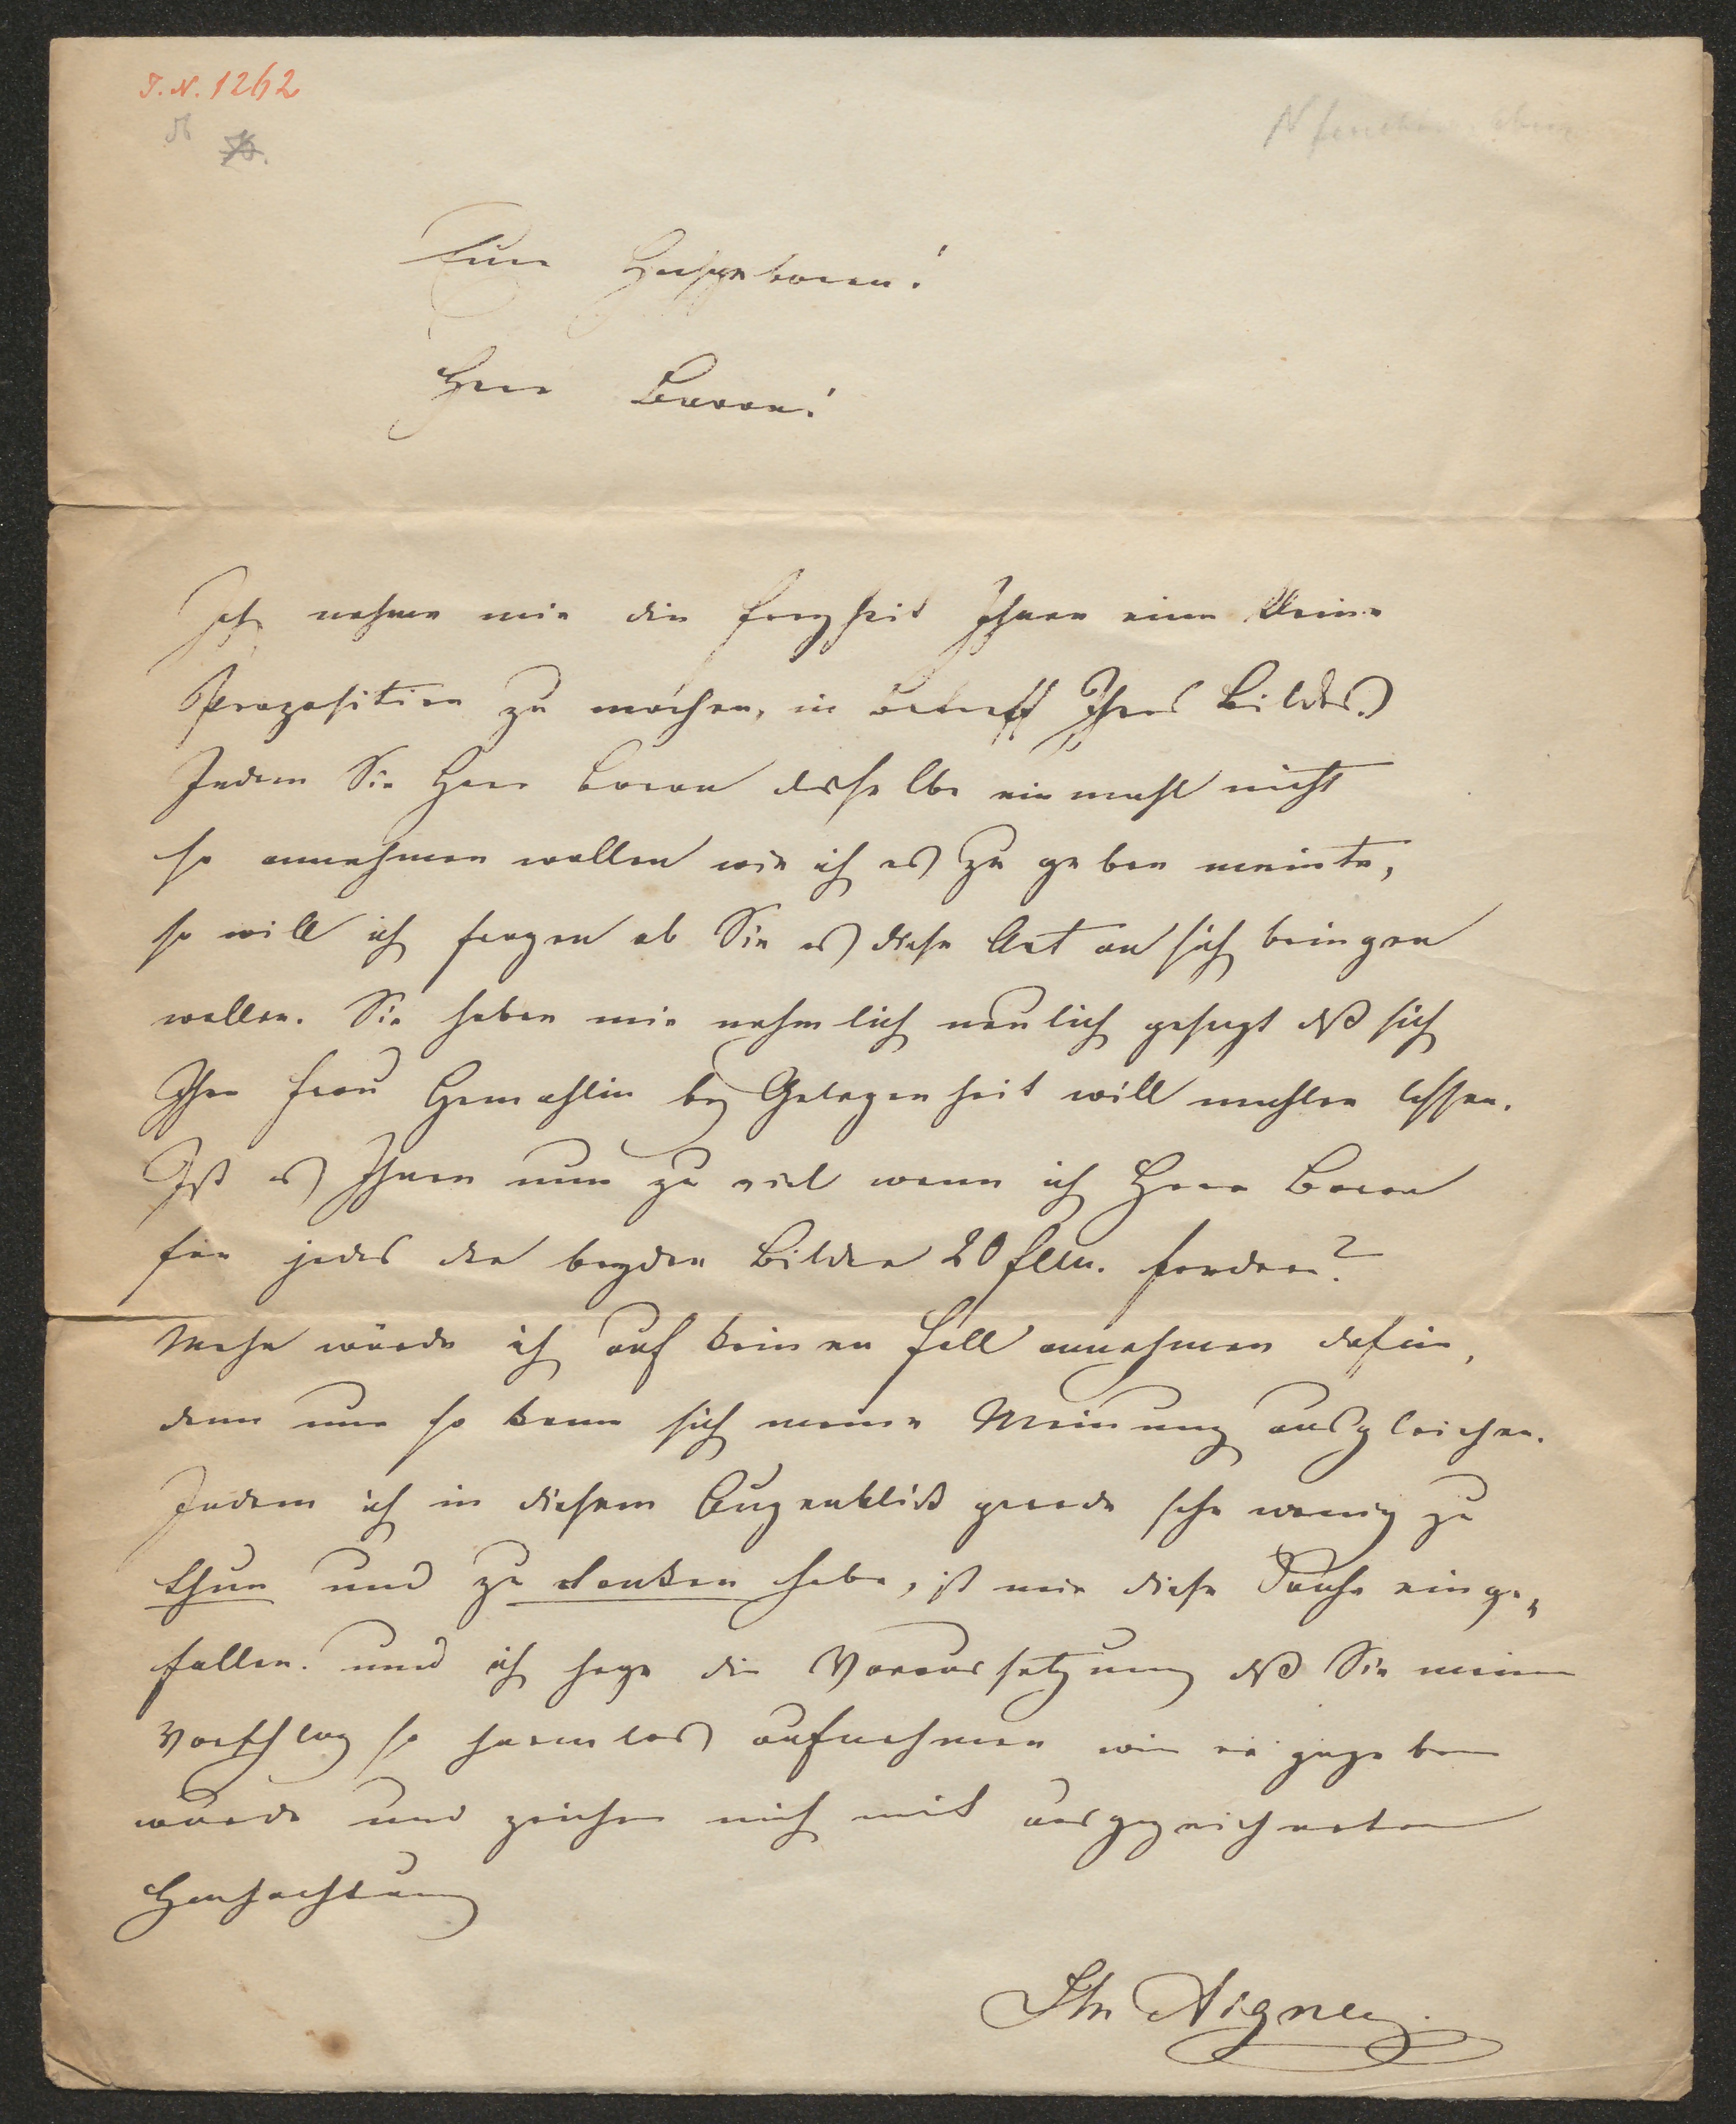 I.N. 1262
Eure Hochgeboren!
Herr Baron!
Ich nehme mir die Freyheit Ihnen eine kleine
Proposition zu machen, in Betreff Ihres Bildes.
Indem Sie Herr Baron dasselbe einmahl nicht
so annehmen wollen wie ich es zu geben meinte,
so will ich fragen ob Sie es diese Art an sich bringen
wollen. Sie haben mir nehmlich neulich gesagt daß sich
Ihre Frau Gemahlin bey Gelegenheit will mahlen lassen.
Ist es Ihnen nun zu viel wenn ich Herr Baron
für jedes der beyden Bilder 20 fl fordere?
Mehr würde ich auf keinen Fall annehmen dafür,
denn nur so kann sich meine Meinung ausgleichen.
Indem ich in diesem Augenblick gerade sehr wenig zu
thun und zu denken habe, ist mir diese Sache einge„
fallen. und ich hege die Voraussetzung daß Sie meinen
Vorschlag so harmlos aufnehmen wie er gegeben
wurde und zeichne mich mit ausgezeichneter
Hochachtung
Aigner